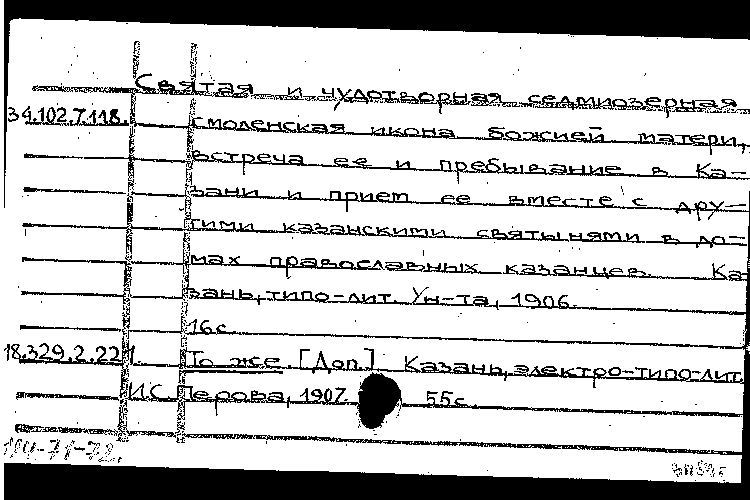 Святая и чудотворная седмиозерная
34.102.7.118. смоленская икона божией матери,
встреча ее и пребывание в Ка-
зани и прием ее вместе с дру-
гими казанскими святынями в до-
мах православных казанцев. Ка-
зань, типо-лит. Ун-та, 1906.
16с.
18.329.2.221. То же. [Доп.] Казань, электро-типо-лит.
И.С. Перова, 1907. 55с.
114-71-72.